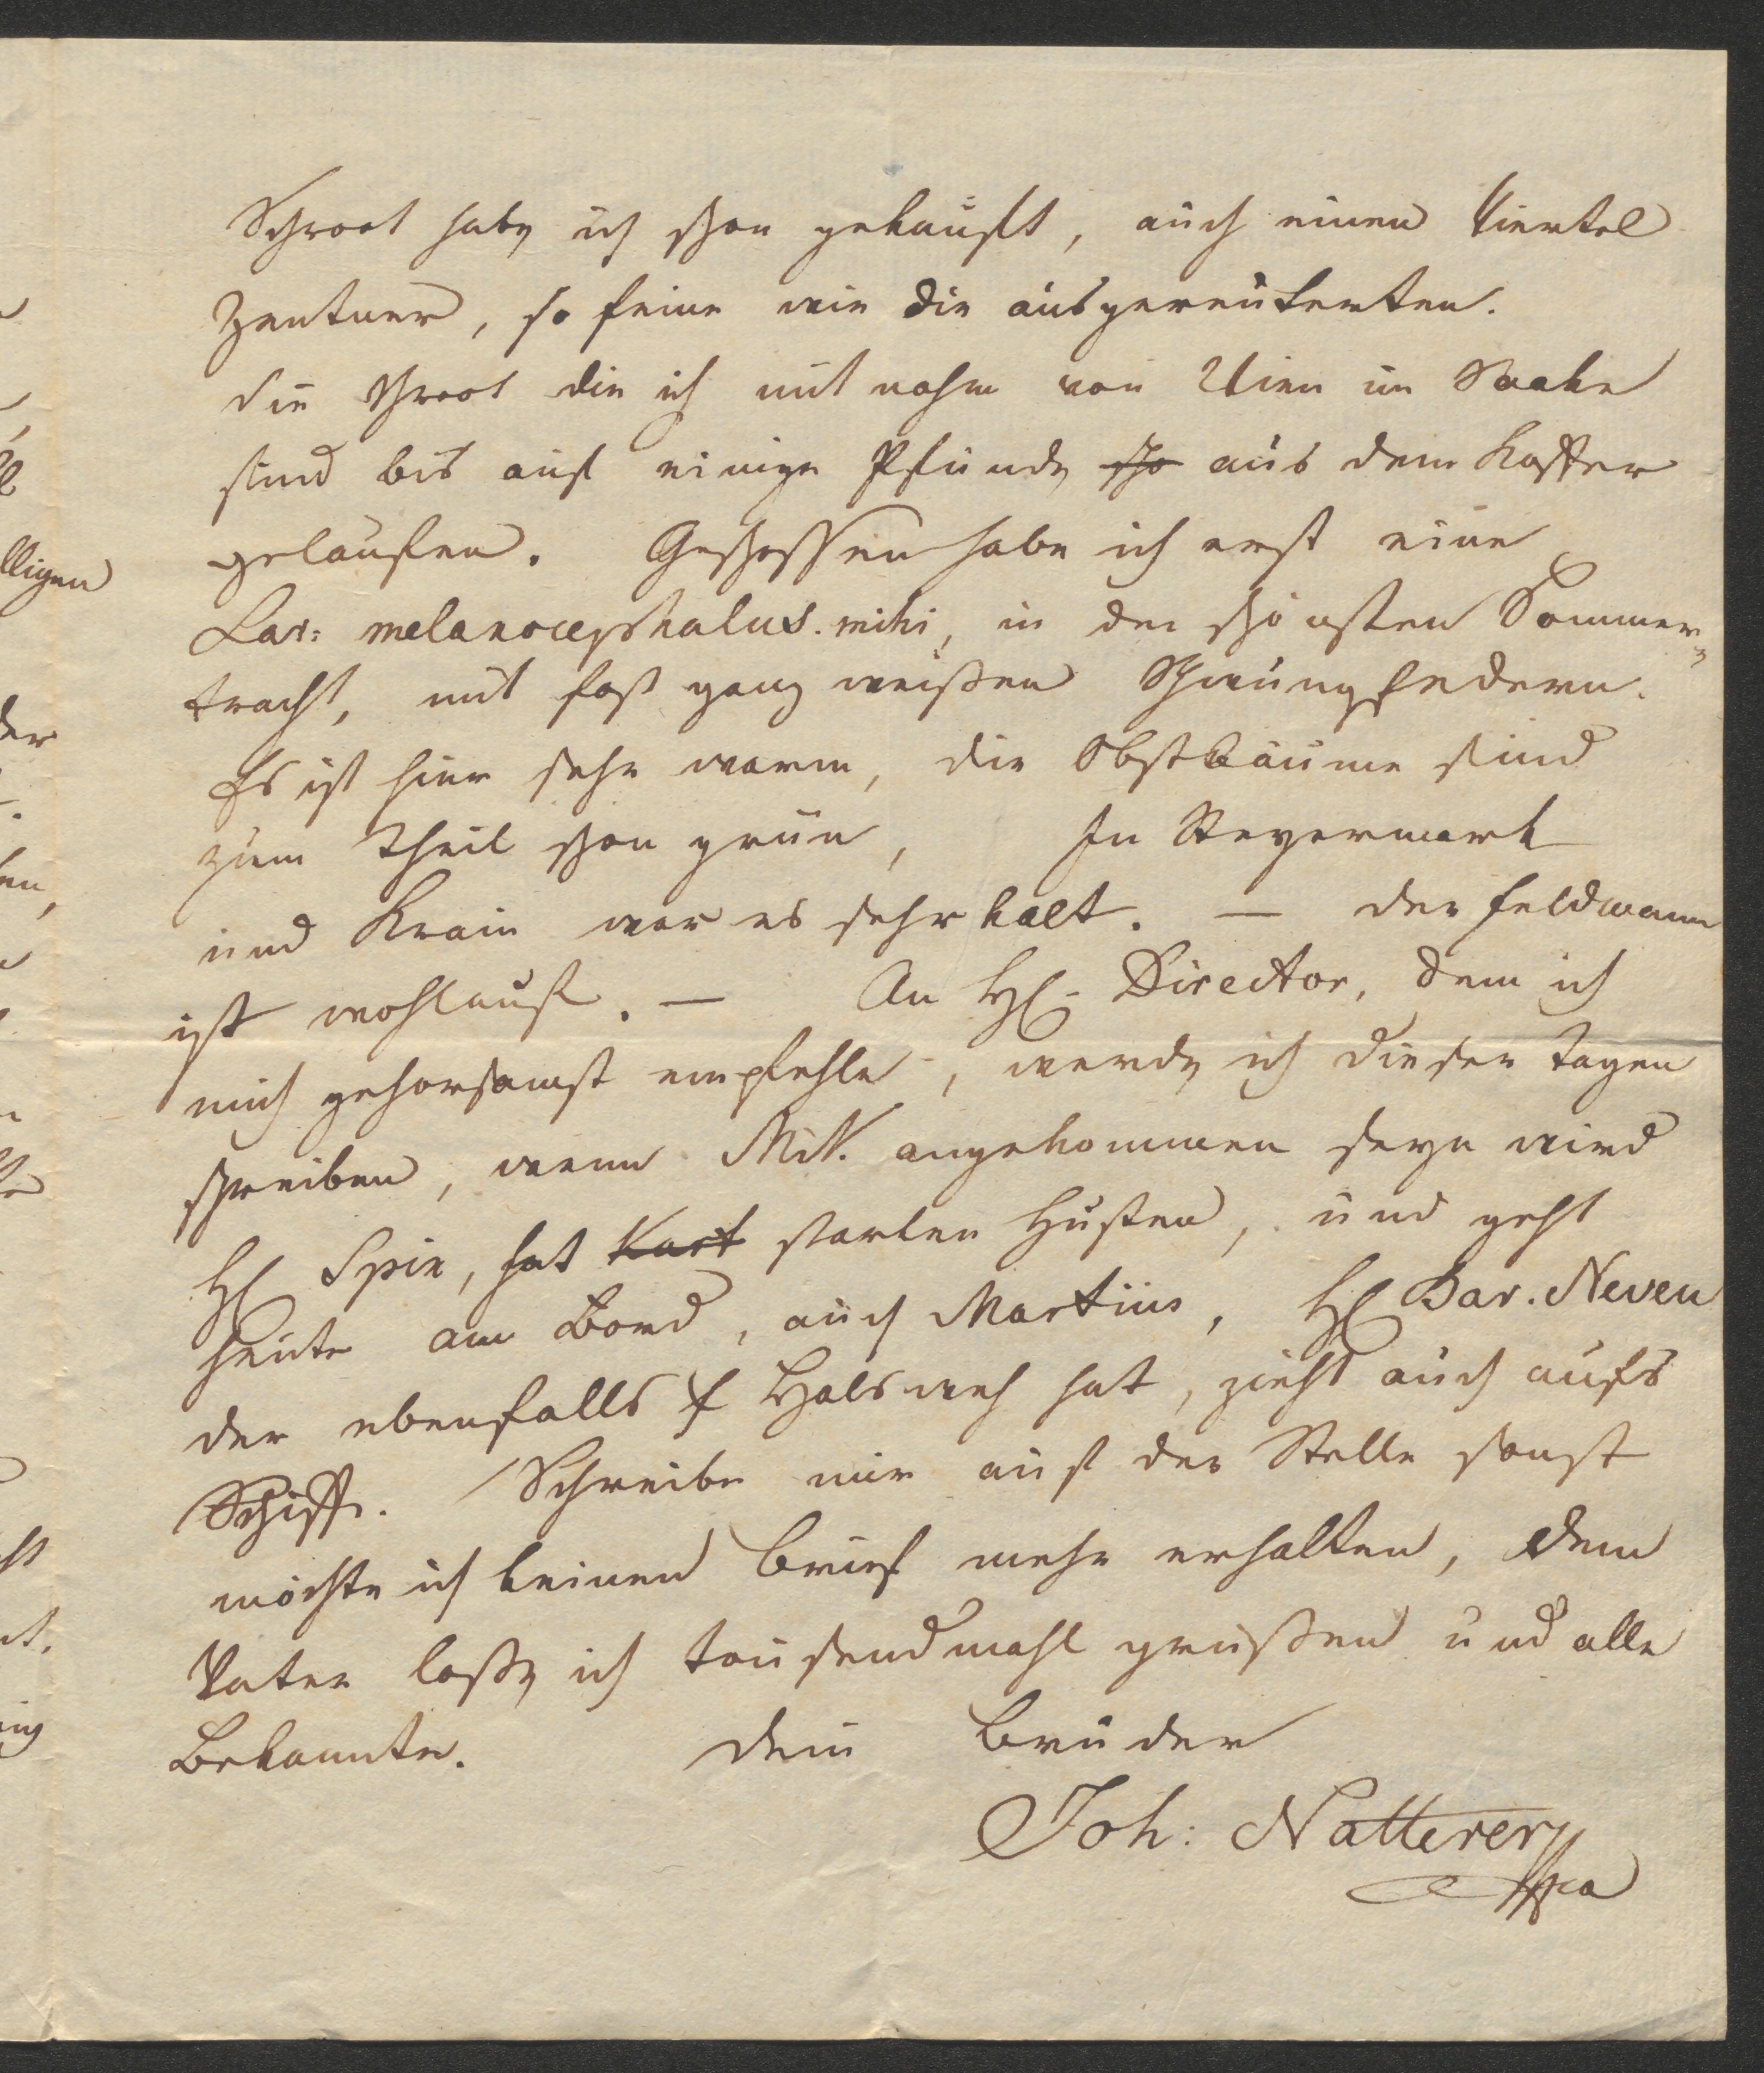 Schroot habe ich schon gekauft, auch einen Viertel
Zentner, so feine wie die ausgereuterten.
die Schroot die ich mit nahm von Wien im Sacke
sind bis auf einige Pfunde scho aus dem Koffer
gelaufen. Geschossen habe ich erst eine
Lar: melanocephalus. mihi, in der schönsten Sommer=
tracht, mit fast ganz weißen Schwungfedern.
Es ist hier sehr warm, die Obstbäume sind
zum Theil schon grün, In Steyermark
und Krain war es sehr kalt. — der Feldmann
ist wohlauf. — An H. Director, dem ich
mich gehorsamst empfehle, werde ich dieser Tagen
schreiben, wenn Mik. angekommen seyn wird
H Spix, hat starken Husten, und geht
heute am Bord, auch Martius, H Bar. Neveu
der ebenfalls Halsweh hat, zieht auch aufs
Schiff. Schreibe mir auf der Stelle sonst
möchte ich keinen Brief mehr erhalten, dem
Vater lasse ich tausendmahl grüßen und alle
Bekannte. dein Bruder
Joh: Natterer
mpa
lligen